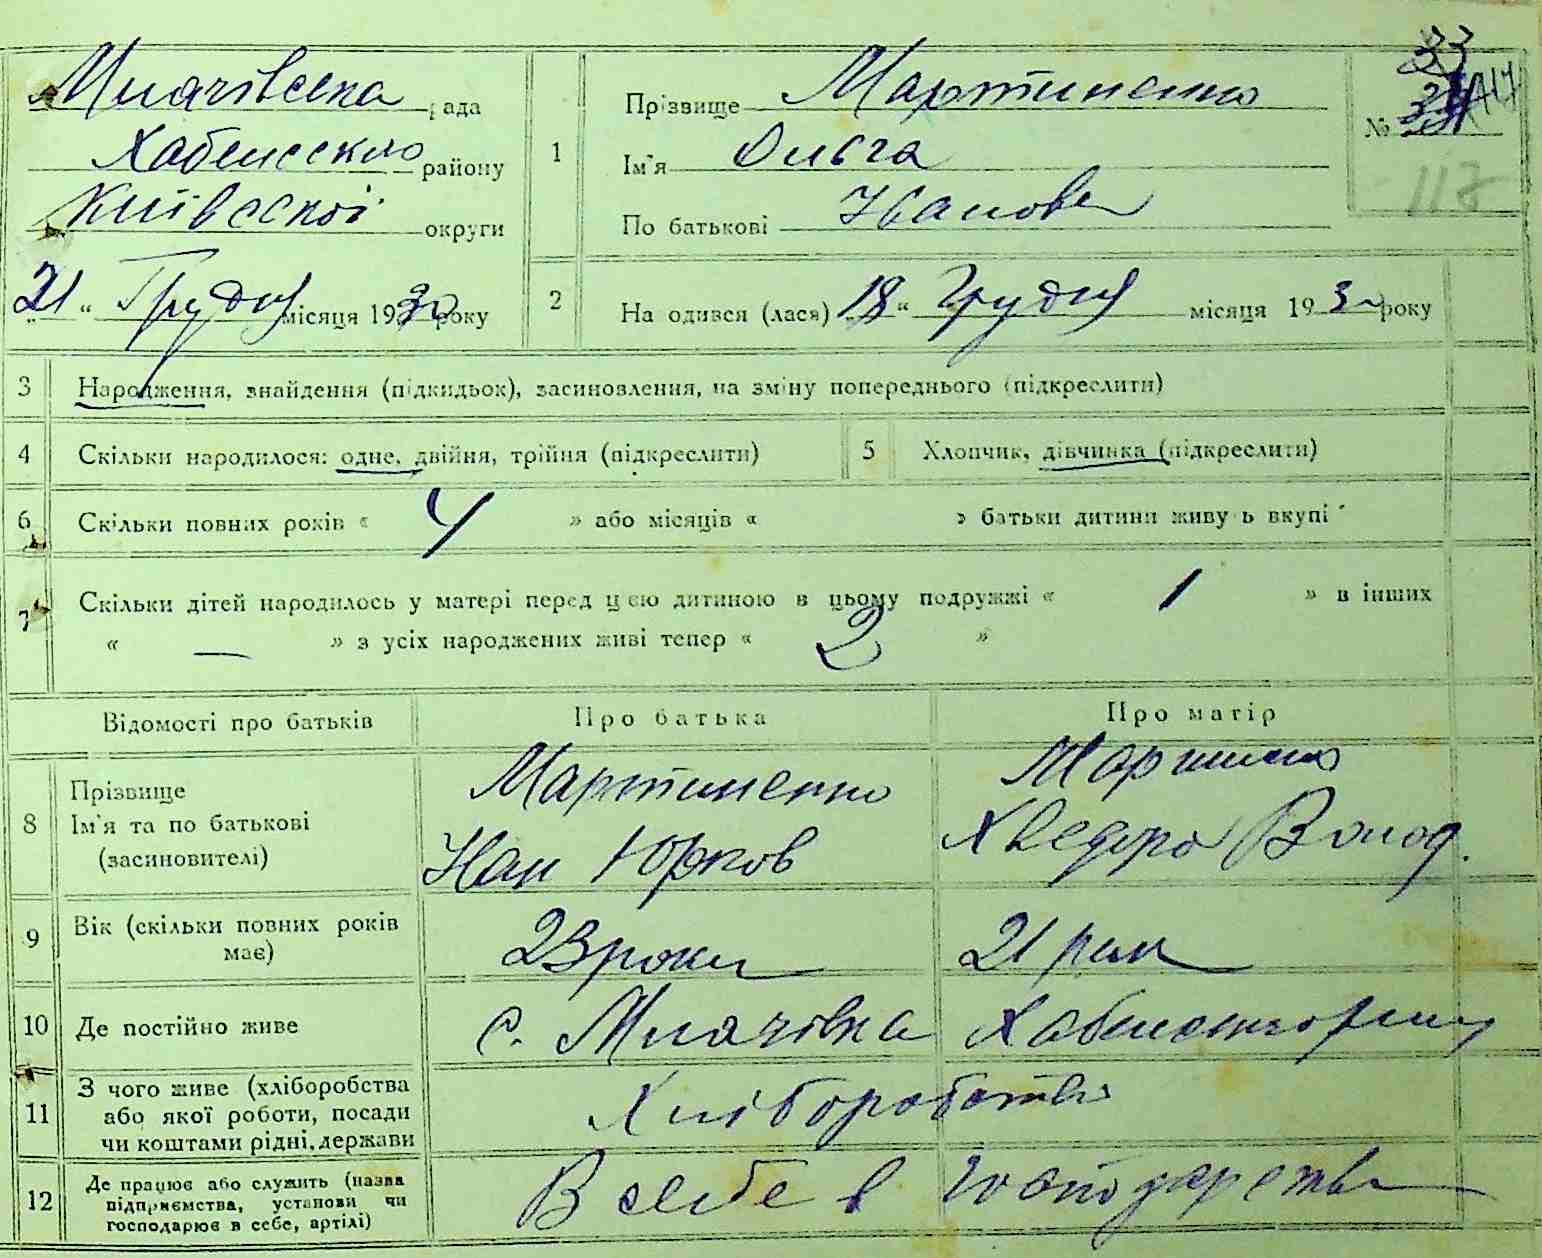 Млачівська рада
Хабенського району
Київської округи
„21“ Грудня місяця 1930 року
1
Прізвище Мартиненко
Ім'я Ольга
По батькові Іванова
№
33
118
2 На одився (лася) „18“ Грудня місяця 1930 року
3 Народження, знайдення (підкидьок), засиновлення, на зміну попереднього (підкреслити)
4 Скільки народилося: одне, двійня, трійня (підкреслити)
5 Хлопчик, дівчинка (підкреслити)
6 Скільки повних років « 4 » або місяців « » батьки дитини живу ь вкупі
7 Скільки дітей народилось у матері перед цією дитиною в цьому подружжі « 1 » в інших
« — » з усіх народжених живі тепер « 2 »
Відомості про батьків Про батька Про матір
8 Прізвище
Ім'я та по батькові
(засиновителі)
Мартиненко
Іван Юрков
Мартиненко
Хведора Волод.
9 Вік (скільки повних років
має)
23 роки
21 рік
10 Де постійно живе с. Млачівка Хабенського району
11 З чого живе (хліборобства
або якої роботи, посади
чи коштами рідні, держави
Хліборобства
12 Де працює або служить (назва
підприємства, установи чи
господарює в себе, артілі)
В себе в господарстві